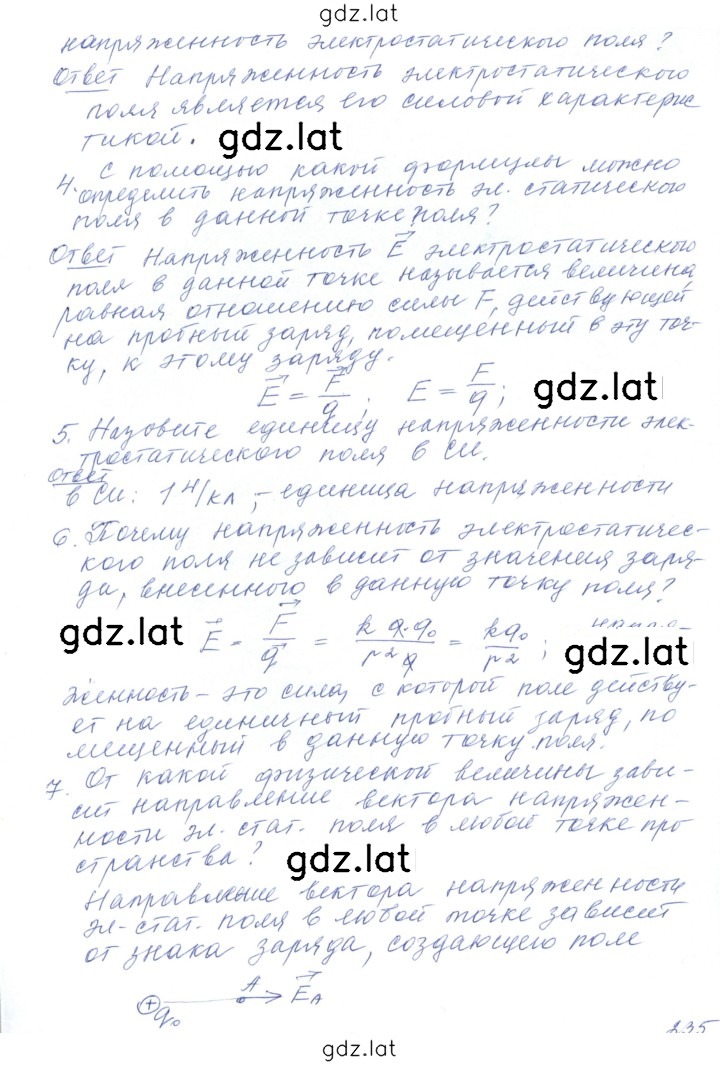 gdz.lat
напряженность электростатического поля?
Ответ Напряженность электростатического
поля является его силовой характерис
тикой. gdz.lat
4. С помощью какой формулы можно
определить напряженность эл. статического
поля в данной точке поля?
Ответ Напряженность E⃗ электростатического
поля в данной точке называется величина,
равная отношению силы F, действующей
на пробный заряд, помещенный в эту точ-
ку, к этому заряду.
E⃗ = F⃗/q; E = F/q; gdz.lat
5. Назовите единицу напряженности элек-
тростатического поля в Си.
Ответ
в Си: 1 Н/Кл, - единица напряженности
6. Почему напряженность электростатичес-
кого поля не зависит от значения заря-
да, внесенного в данную точку поля?
gdz.lat E⃗ = F⃗/q⃗ = k q·q₀/r²q = kq₀/r²; напря-
gdz.lat
женность - это сила, с которой поле действу-
ет на единичный пробный заряд, по
мещенный в данную точку поля.
7. От какой физической величины зави-
сит направление вектора напряжен-
ности эл. стат. поля в любой точке про
странства?
gdz.lat
Направление вектора напряженности
эл-стат. поля в любой точке зависит
от знака заряда, создающего поле
+ q₀ A E⃗A
235
gdz.lat